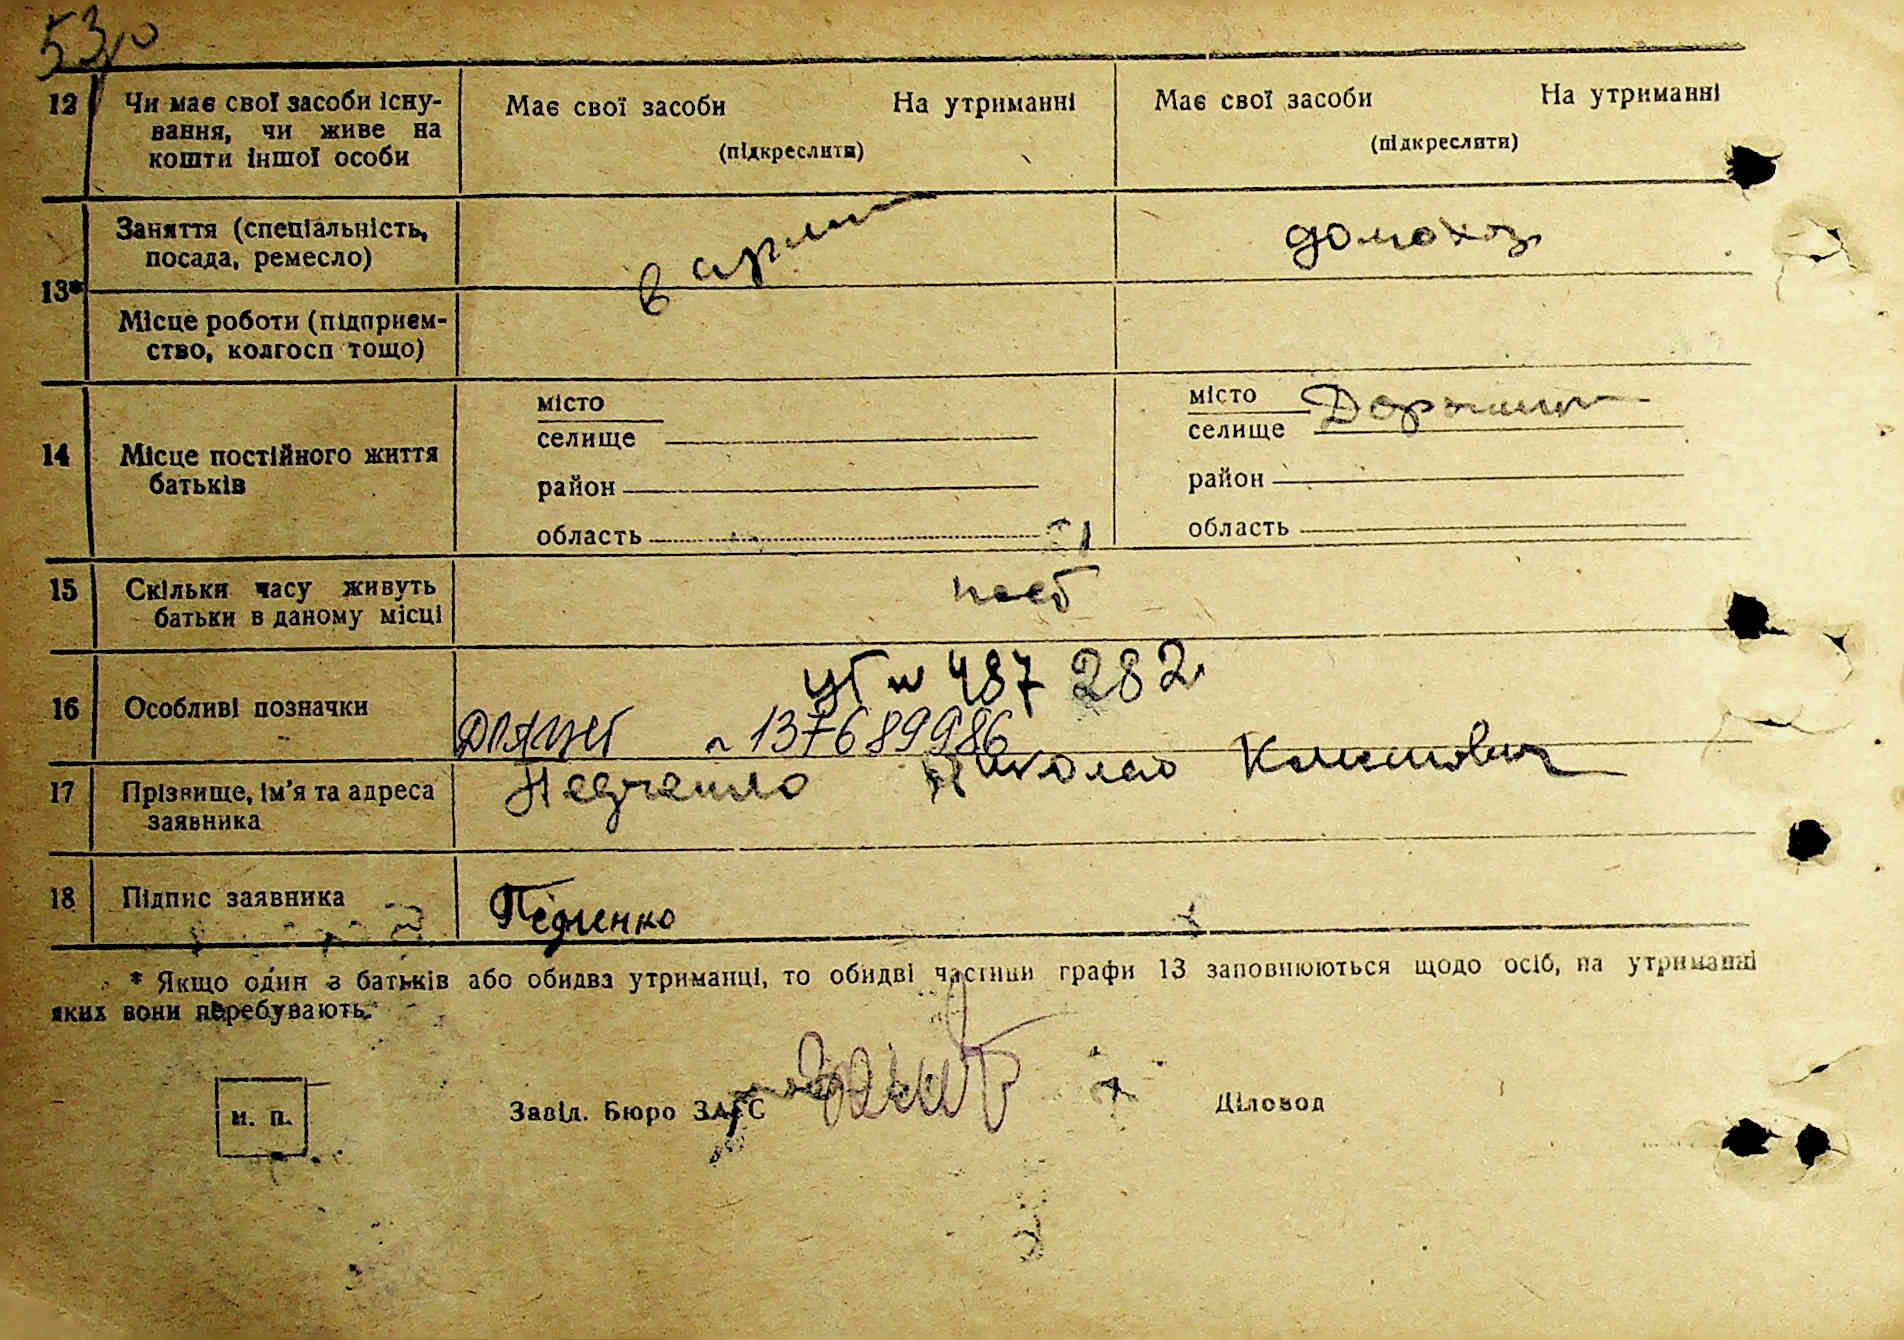 53
12 Чи має свої засоби існу-
вання, чи живе на
кошти іншої особи
Має свої засоби На утриманні
(підкреслити)
Має свої засоби На утриманні
(підкреслити)
13*
Заняття (спеціальність,
посада, ремесло)
в армии
домохоз
Місце роботи (підприєм-
ство, колгосп тощо)
14 Місце постійного життя
батьків
місто
селище
район
область
місто
селище
район
область
15 Скільки часу живуть
батьки в даному місці
16 Особливі позначки
№ 487 282
№ 137689986
17 Прізвище, ім'я та адреса
заявника
Николао
18 Підпис заявника
Педченко
* Якщо один з батьків або обидва утриманці, то обидві частини графи 13 заповнюються щодо осіб, на утриманні
яких вони перебувають.
м. п.
Завід. Бюро ЗАГС
Діловод